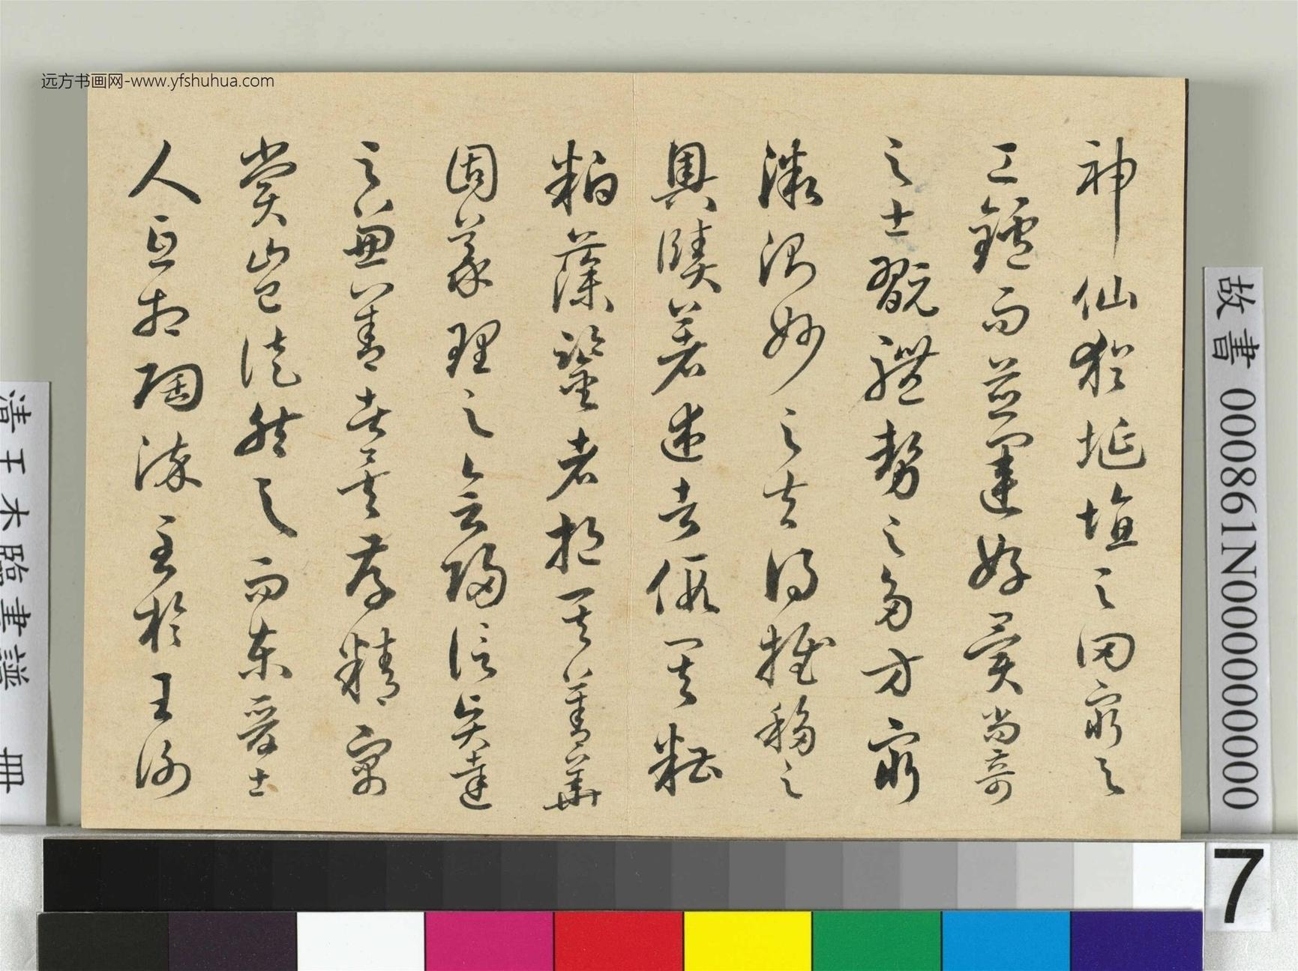 远方书画网-www.yfshuhua.com
神仙猶埏埴之罔窮與
工鑪而並運好異尚奇
之士翫體勢之多方窮
微測妙之夫得推移之
奧賾著述者假其糟
粕藻鑒者挹其菁華
固義理之會歸信賢達
之兼善者矣存精寓
賞豈徒然與而東晉士
人互相陶淬至於王謝
故書 000861N000000000
清王木臨書譜 冊
7